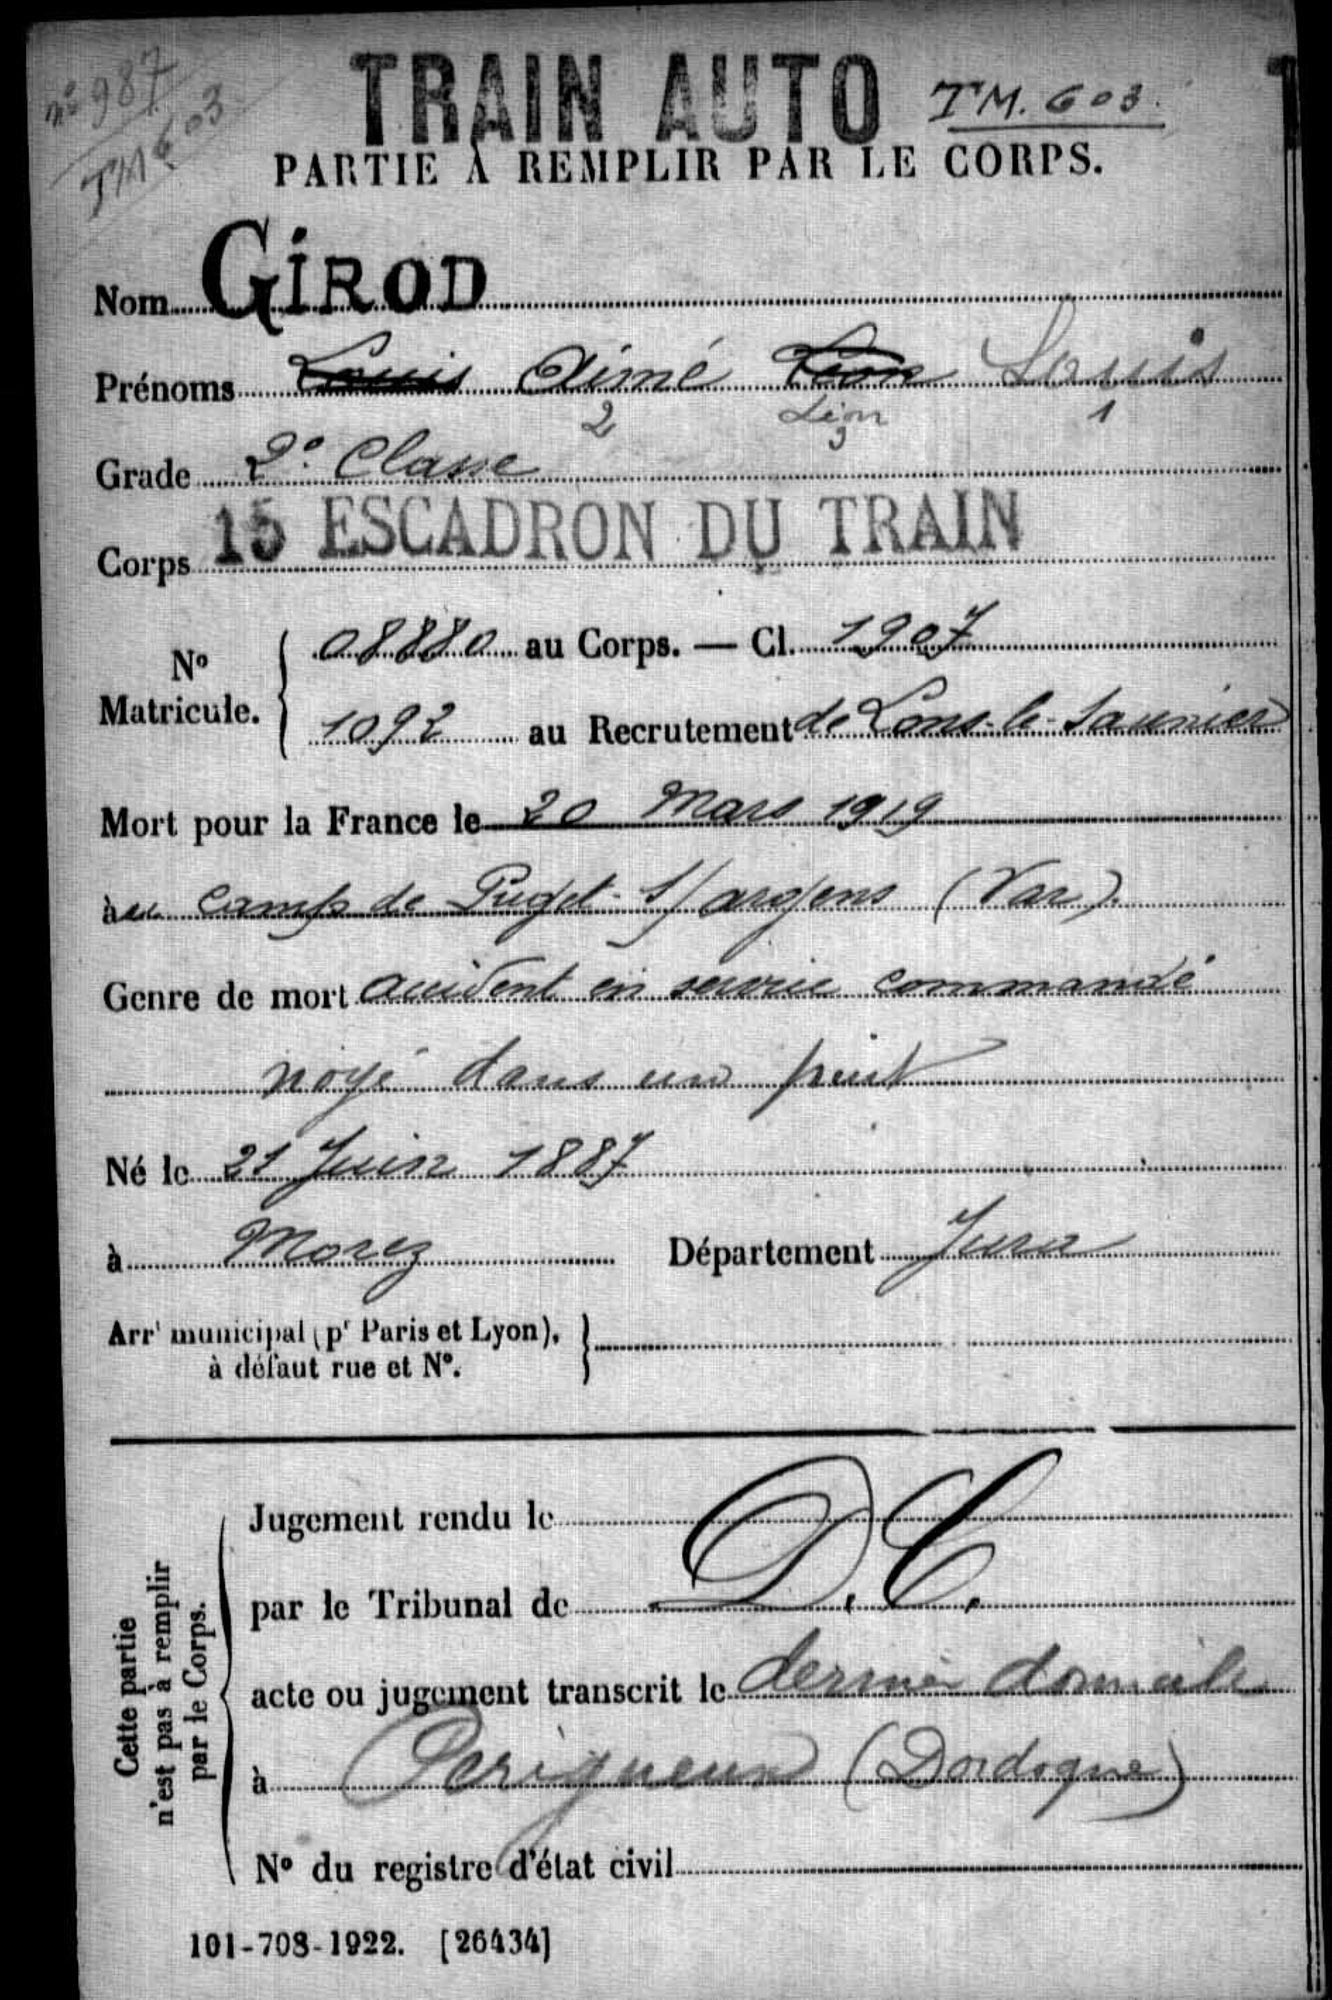 n° 987
TM 603
TRAIN AUTO TM. 603.
PARTIE A REMPLIR PAR LE CORPS.
Nom GIROD
Prénoms Louis Aimé Léon Louis
2 Léon 3 1
Grade 2e Classe
Corps 15 ESCADRON DU TRAIN
N° Matricule. 08880 au Corps. — Cl. 1907
1092 au Recrutement de Lons-le-Saunier
Mort pour la France le 20 Mars 1919
àu camp de Puget-s/argens (Var).
Genre de mort accident en service commandé
noyé dans un puit
Né le 21 Juin 1887
à Morez Département Jura
Arrt municipal (pr Paris et Lyon),
à défaut rue et N°.
Cette partie
n'est pas à remplir
par le Corps.
Jugement rendu le
par le Tribunal de D.C.
acte ou jugement transcrit le dernier domicile
à Périgueux (Dordogne)
N° du registre d'état civil
101-708-1922. [26434]